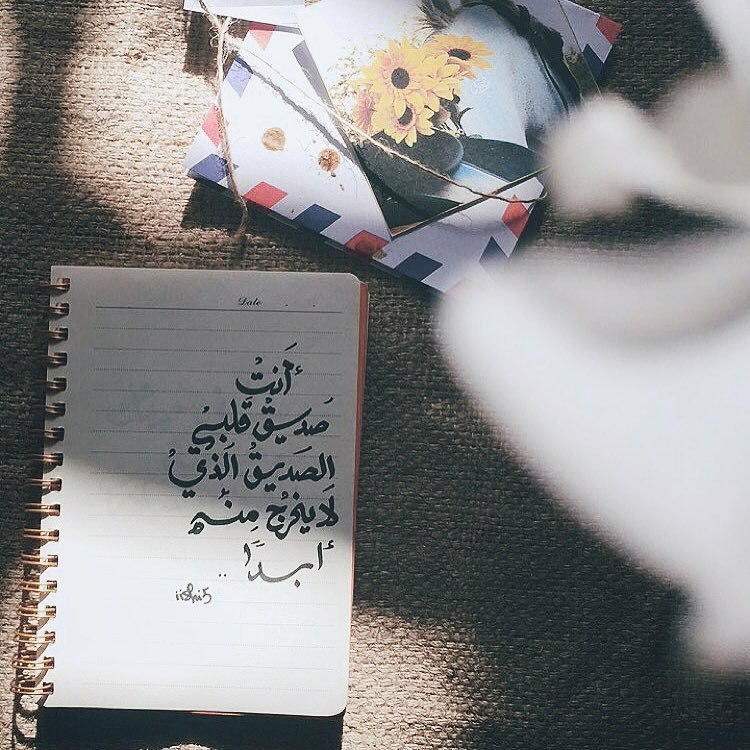 Date
أنت
صديق قلبي
الصديق الذي
لا يخرج منه
أبدًا ..
iishi5